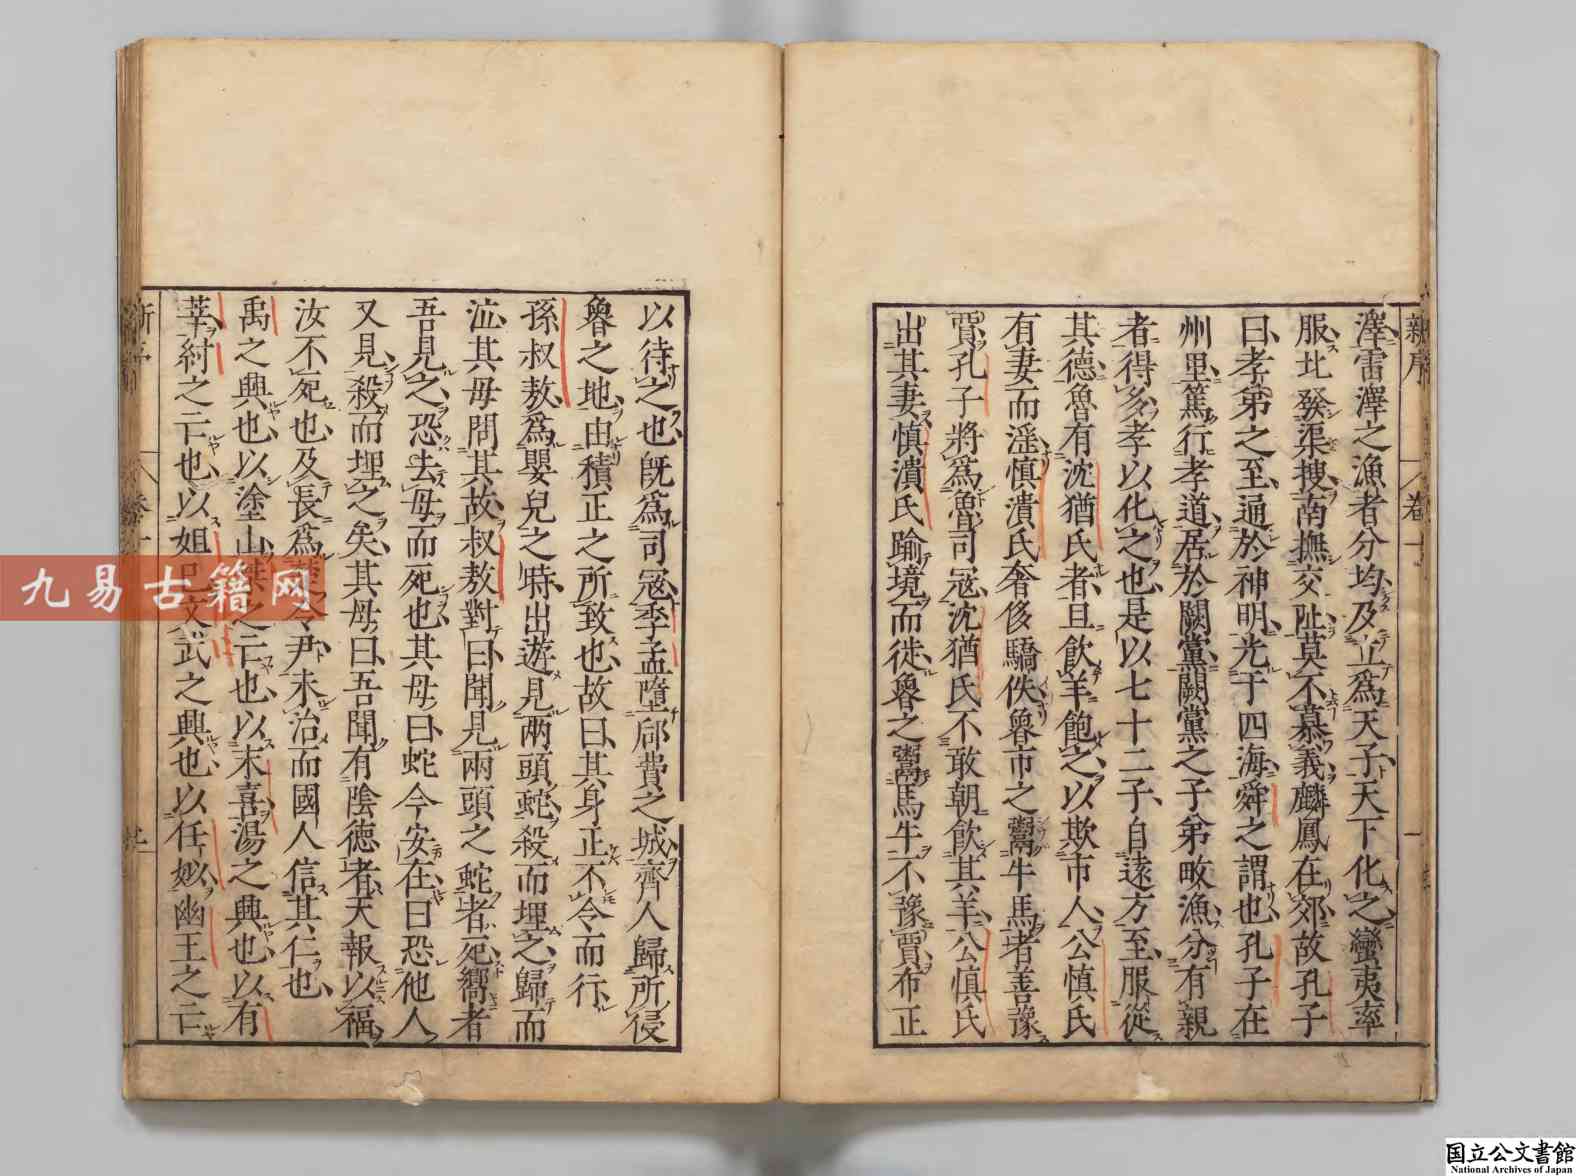 新序 卷一 一
澤雷澤之漁者分均及立爲天子天下化之蠻夷率
服北發渠搜南撫交阯莫不慕義麟鳳在郊故孔子
曰孝弟之至通於神明光于四海舜之謂也孔子在
州里篤行孝道居於闕黨闕黨之子弟畋漁分有親
者得多孝以化之也是以七十二子自遠方至服從
其德魯有沈猶氏者旦飲羊飽之以欺市人公慎氏
有妻而淫慎潰氏奢侈驕佚魯市之鬻牛馬者善豫
賈孔子將爲魯司寇沈猶氏不敢朝飲其羊公慎氏
出其妻慎潰氏踰境而徙魯之鬻馬牛不豫賈布正
以待之也旣爲司寇季孟墮郈費之城齊人歸所侵
魯之地由積正之所致也故曰其身正不令而行
孫叔敖爲嬰兒之時出遊見兩頭蛇殺而埋之歸而
泣其母問其故叔敖對曰聞見兩頭之蛇者死嚮者
吾見之恐去母而死也其母曰蛇今安在曰恐他人
又見殺而埋之矣其母曰吾聞有陰德者天報以福
汝不死也及長爲楚令尹未治而國人信其仁也
禹之興也以塗山桀之亡也以末喜湯之興也以有
莘紂之亡也以妲己文武之興也以任姒幽王之亡
九易古籍网
国立公文書館
National Archives of Japan